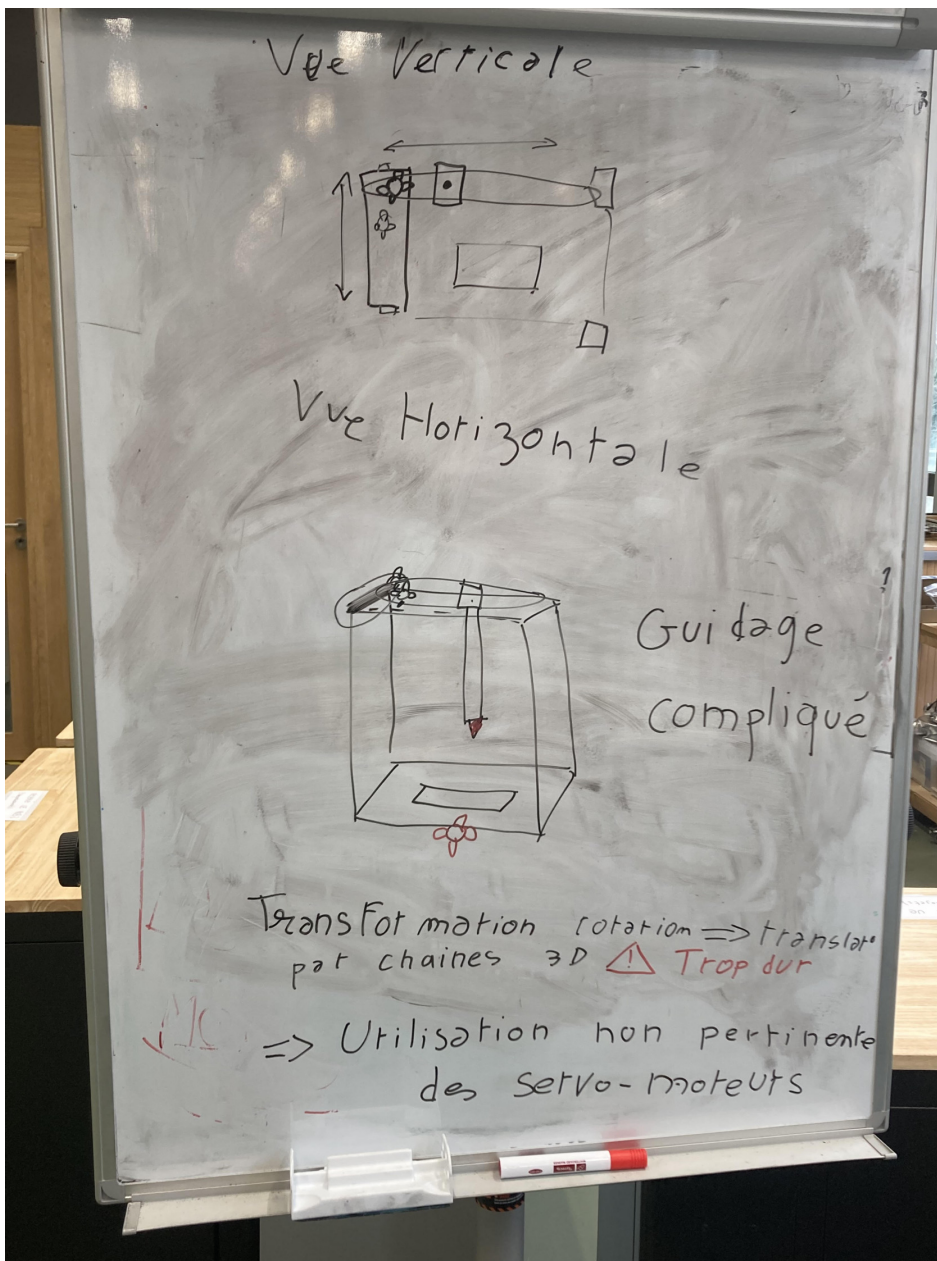 Vue Verticale
Vue Horizontale
Guidage
compliqué
Transformation rotation => translat°
par chaines 3D ! Trop dur
=> Utilisation non pertinente
des servo-moteurs